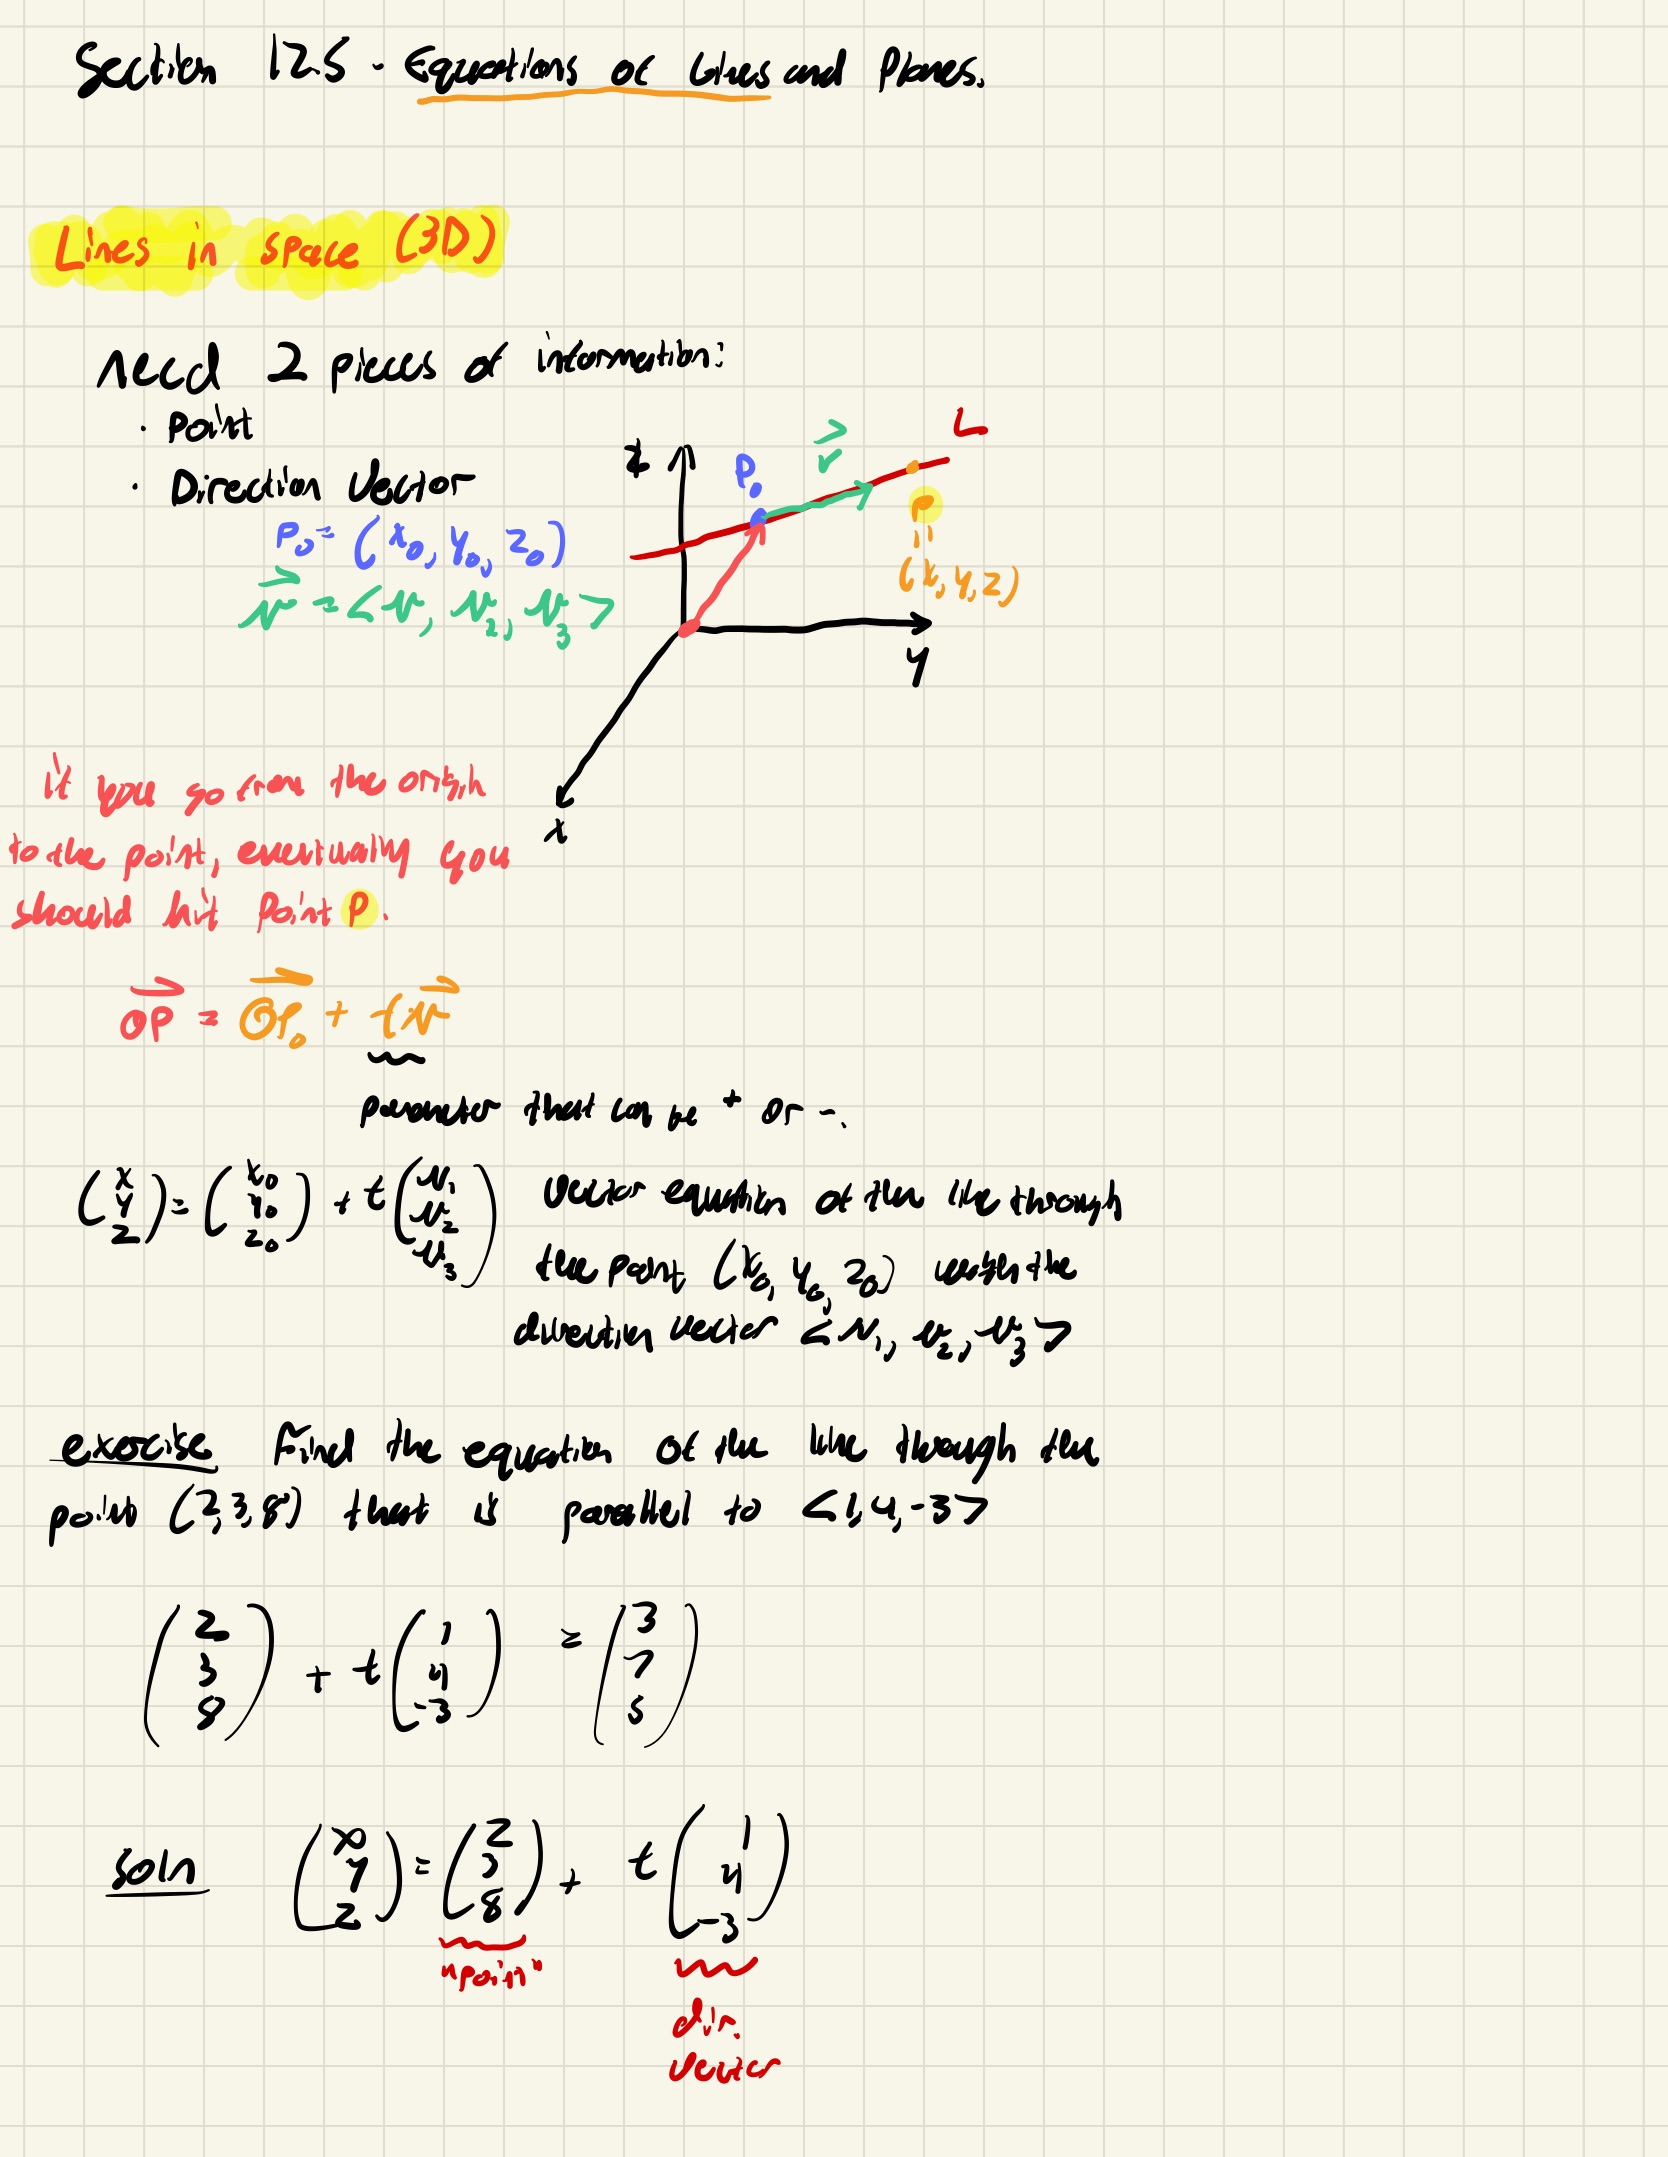 Section 12.5 - Equations of Lines and Planes.
Lines in space (3D)
need 2 pieces of information:
· Point
· Direction Vector
P₀ = (x₀, y₀, z₀)
v⃗ = <v₁, v₂, v₃>
z
P₀
v⃗
L
P
(x, y, z)
y
x
if you go from the origin
to the point, eventually you
should hit Point P.
OP⃗ = OP₀⃗ + tv⃗
parameter that can be + or -.
(x y z) = (x₀ y₀ z₀) + t (v₁ v₂ v₃) vector equation of the line through
the point (x₀, y₀, z₀) with the
direction vector <v₁, v₂, v₃>
exercise Find the equation of the line through the
point (2,3,8) that is parallel to <1,4,-3>
(2 3 8) + t (1 4 -3) = (3 7 5)
soln (x y z) = (2 3 8) + t (1 4 -3)
"point"
dir.
vector